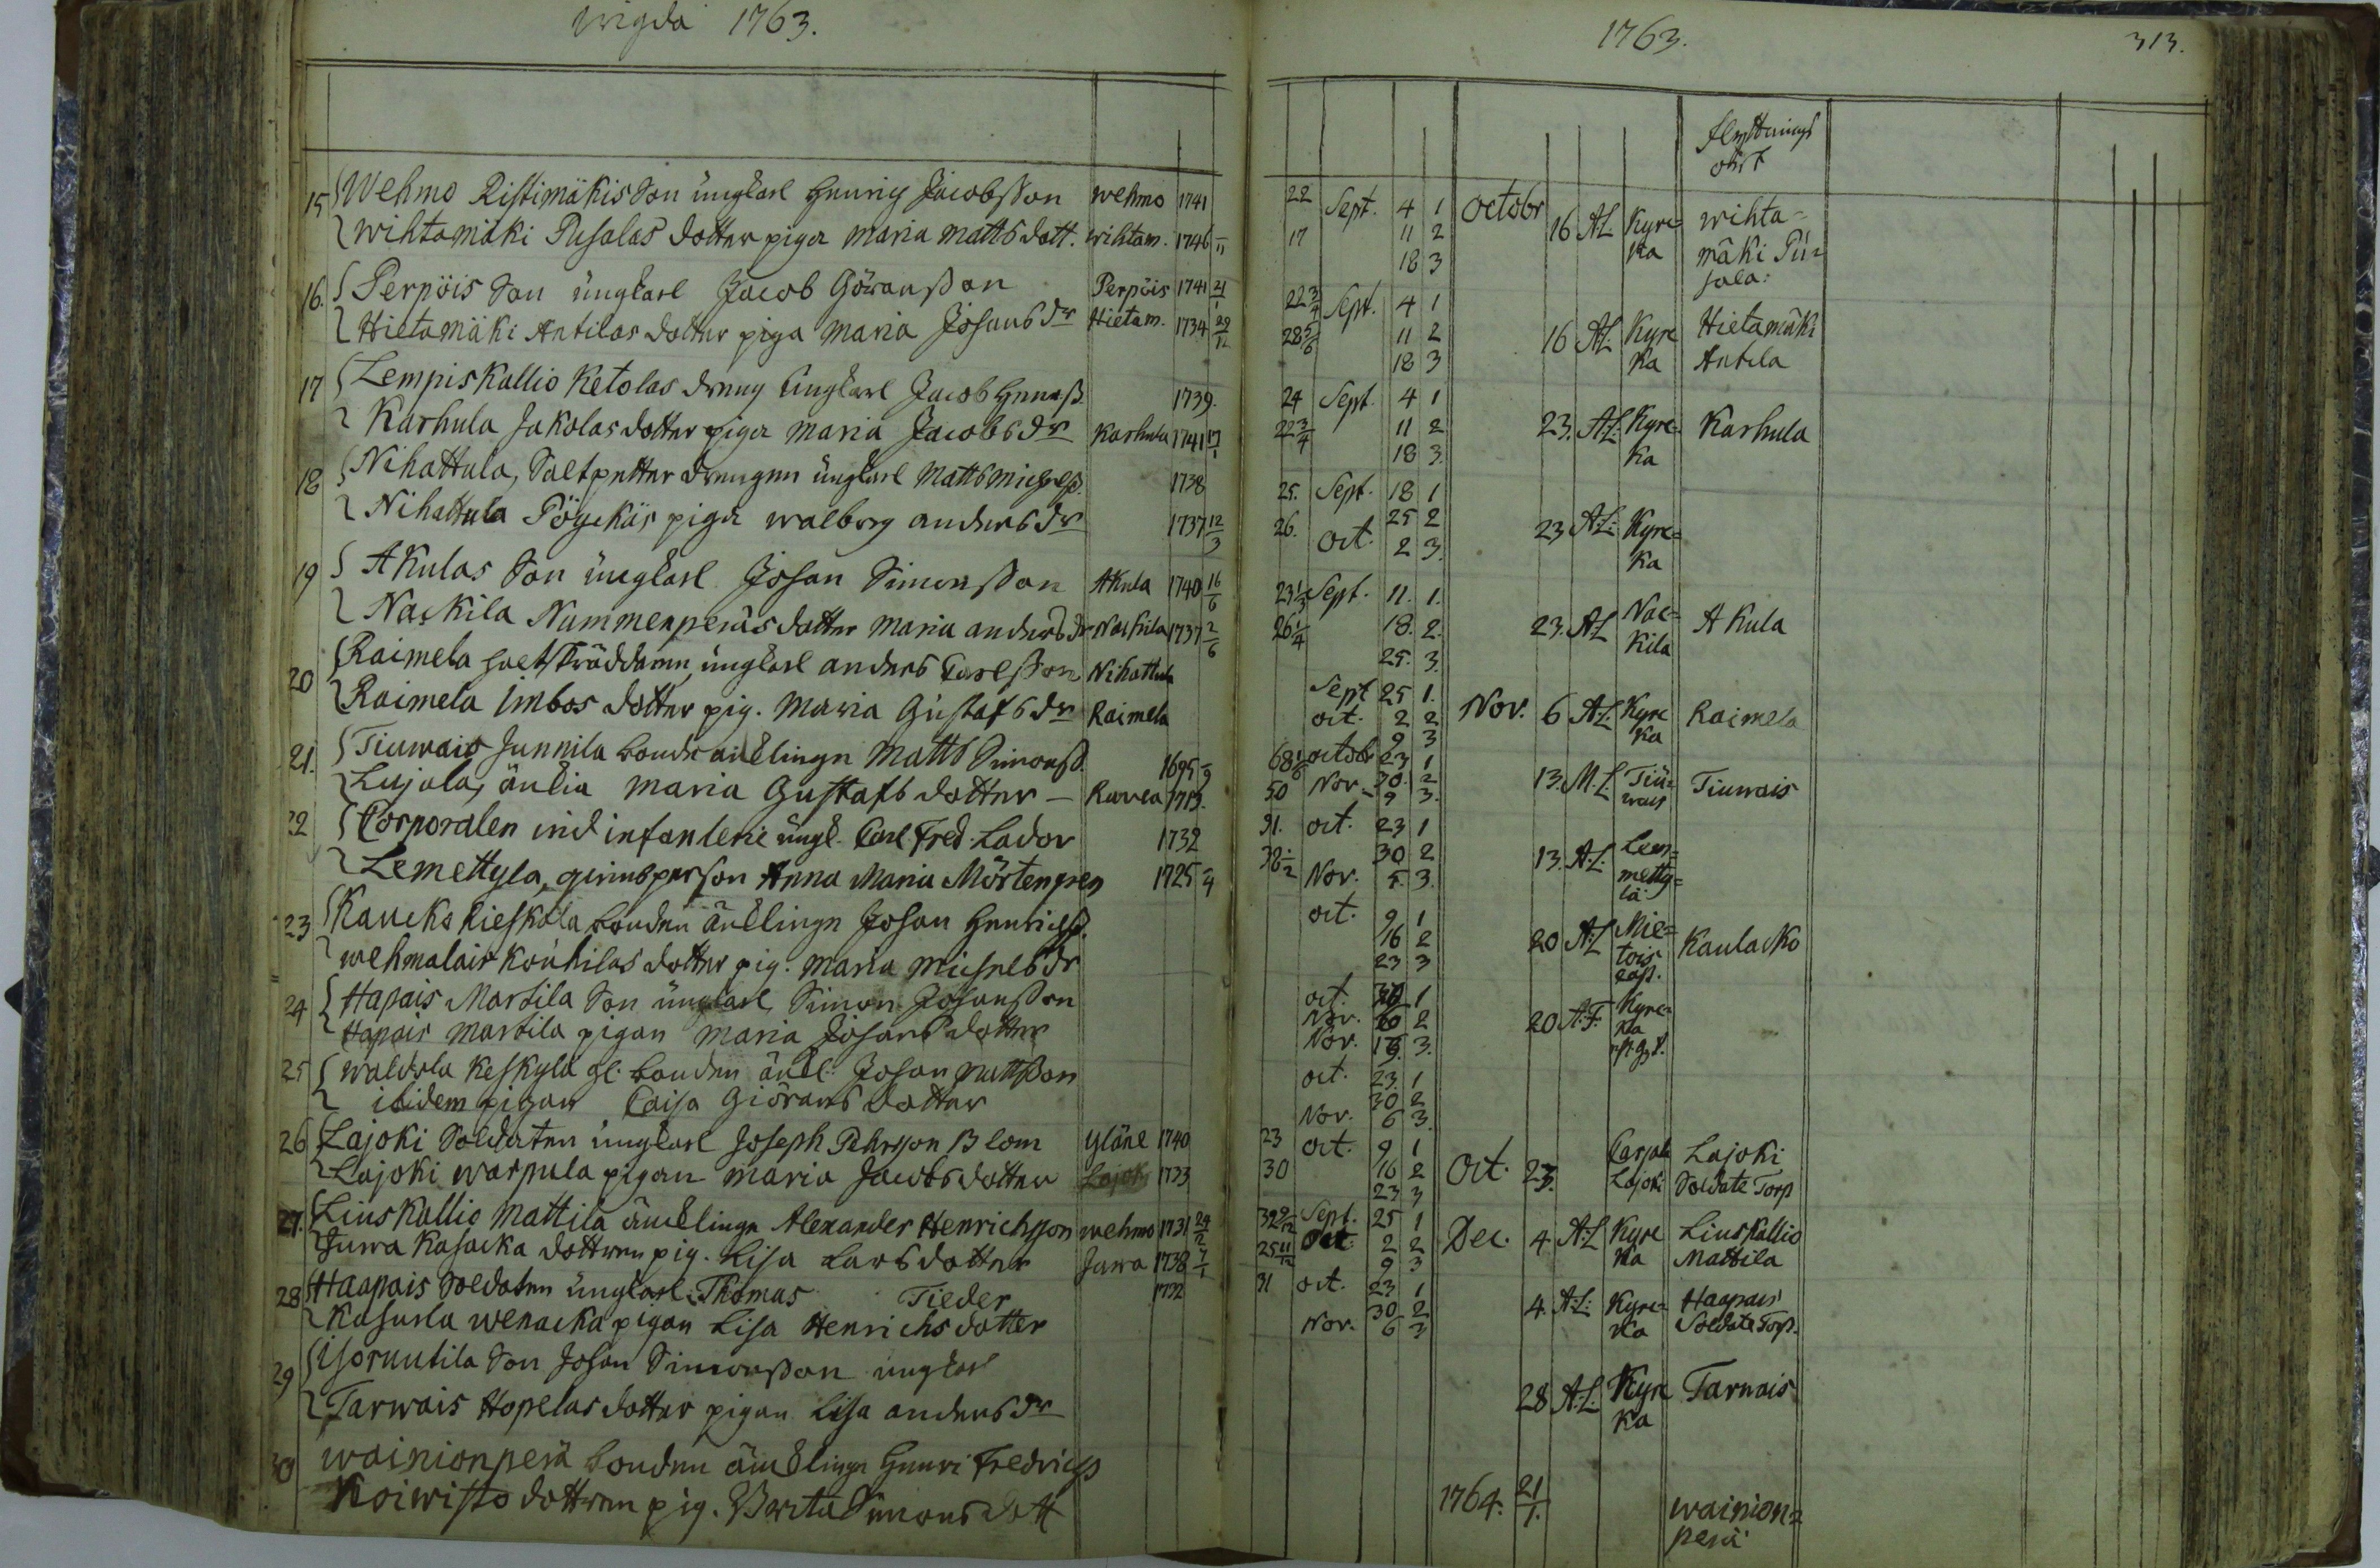 wigda 1763.
15 Wehmo Ristimäkis Son ungkarl Henrig Jacobsson wehmo 1741
wihtamäki Pusalas dotter piga maria matts dott. wihtam. 1746
16. Perpöis Son ungkarl Jacob Göransson Perpöis 1741 21/1
Hietamäki Antilas dotter piga maria Johans dr Hietam. 1734 29/12
17 Lempiskallio Ketolas dreng ungkarl Jacob Henrss. 1739.
Karhula Jakolas dotter piga maria Jacobs dr Karhula 1741 17/1
18 Nihattula, Saltpetter drengen ungkarl Matts Michelss. 1738
Nihattula piga walborg anders dr 1737 12/3
19 Akulas Son ungkarl Johan Simonsson Akula 1740 16/6
Nackila Nummenperäs dotter maria anders dr Nackila 1737 2/6
20 Raimela ungkarl anders Carlsson Nihattula
Raimela Imbos dotter pig. Maria Gustafs dr Raimela
21. Tiuwais Junnila bonde änklingn Matts Simonss. 1695
Lujala, änkia maria Gustafs dotter – 1713.
22 Corporalen vid infanterie ungk. Carl Fred. Lador 1732
Lemettyla, qvinsperson Anna Maria Mörtengren 1725
23 bonden änklingn Johan Henrichss.
wehmalais Kouhilas dotter pig. maria Michels dr
24 Hapais Martila Son ungkarl Simon Johansson
Hapais martila pigan maria Johans dotter
25 Keskyla gl. bonden änkl. Johan mattsson
ibidem pigan Caisa Giörans dotter
26 Lajoki Soldaten ungkarl Joseph Pehrsson Blom Yläne 1740
Lajoki warpula pigan maria Jacobs dotter Lajoki 1733
27. Liuskallio Mattila änklingn Alexander Henrichsson wehmo 1731 24/2
Juwa Kasacka dottren pig. Lisa Lars dotter Juwa 1738 7/1
28 Haapais Soldaten ungkarl Thomas Tieder 1732
Kasurla wenacka pigan Lisa Henrichs dotter
29 Isoruutila Son Johan Simonsson ungkarl
Tarwais Hopelas dotter pigan Lisa anders dr
30 wainionperä bonden änklingn Henri Fredricss
Koiwisto dottren pig. Berta Simons dott
1763. 313.
ort
22 Sept. 4 1 Octobr 16 A.L. Kyrc= wihta=
17 11 2 ka mäki Pu=
18 3 sala:
22 3/4 Sept. 4 1 16 A.L. Kyrc Hietamäki
28 5/6 11 2 ka Antila
18 3
24 Sept. 4 1 23. A.L. Kyrc= Karhula
22 3/4 11 2 ka
18 3.
25. Sept. 18 1
26. 25 2 23 A.L. Kyrc=
Oct. 2 3. ka
23 1/3 Sept. 11. 1. 23. A.L. Nac= Akula
26 1/4 18. 2. kila
25. 3.
Sept 25 1. Nov. 6 A.L. Kyrc Raimela
oct. 2 2 ka
9 3
68 1/6 octobr 23 1 13. M.L. Tiu= Tiuwais
50 Nov. 30. 2 wais
9 3.
31. oct. 23 1 13. A.L. Lem=
38 1/2 30 2 metty=
Nov. 5. 3. lä.
oct. 9 1 20 A.L. Mie= Kaulacko
16 2 tois
23 3 cap.
oct. 1 20 A.F. Kyrc=
Nov. 2 ka
Nov. 3.
oct. 23. 1
30 2
Nov. 6 3.
23 oct. 9 1 Lajoki
30 16 2 Oct. 23. Lajoki Soldate Torp
23 3
32 9/12 Sept. 25 1 Dec. 4. A.L. Kyrc Liuskallio
25 11/12 Oct. 2 2 ka Mattila
9 3
31 oct. 23 1 4. A.L. Kyrc= Haapais
30 2 ka Soldate Torp.
Nov. 6 3
28 A.L. Kyrc Tarwais
ka
1764. 21/1. wainion=
perä